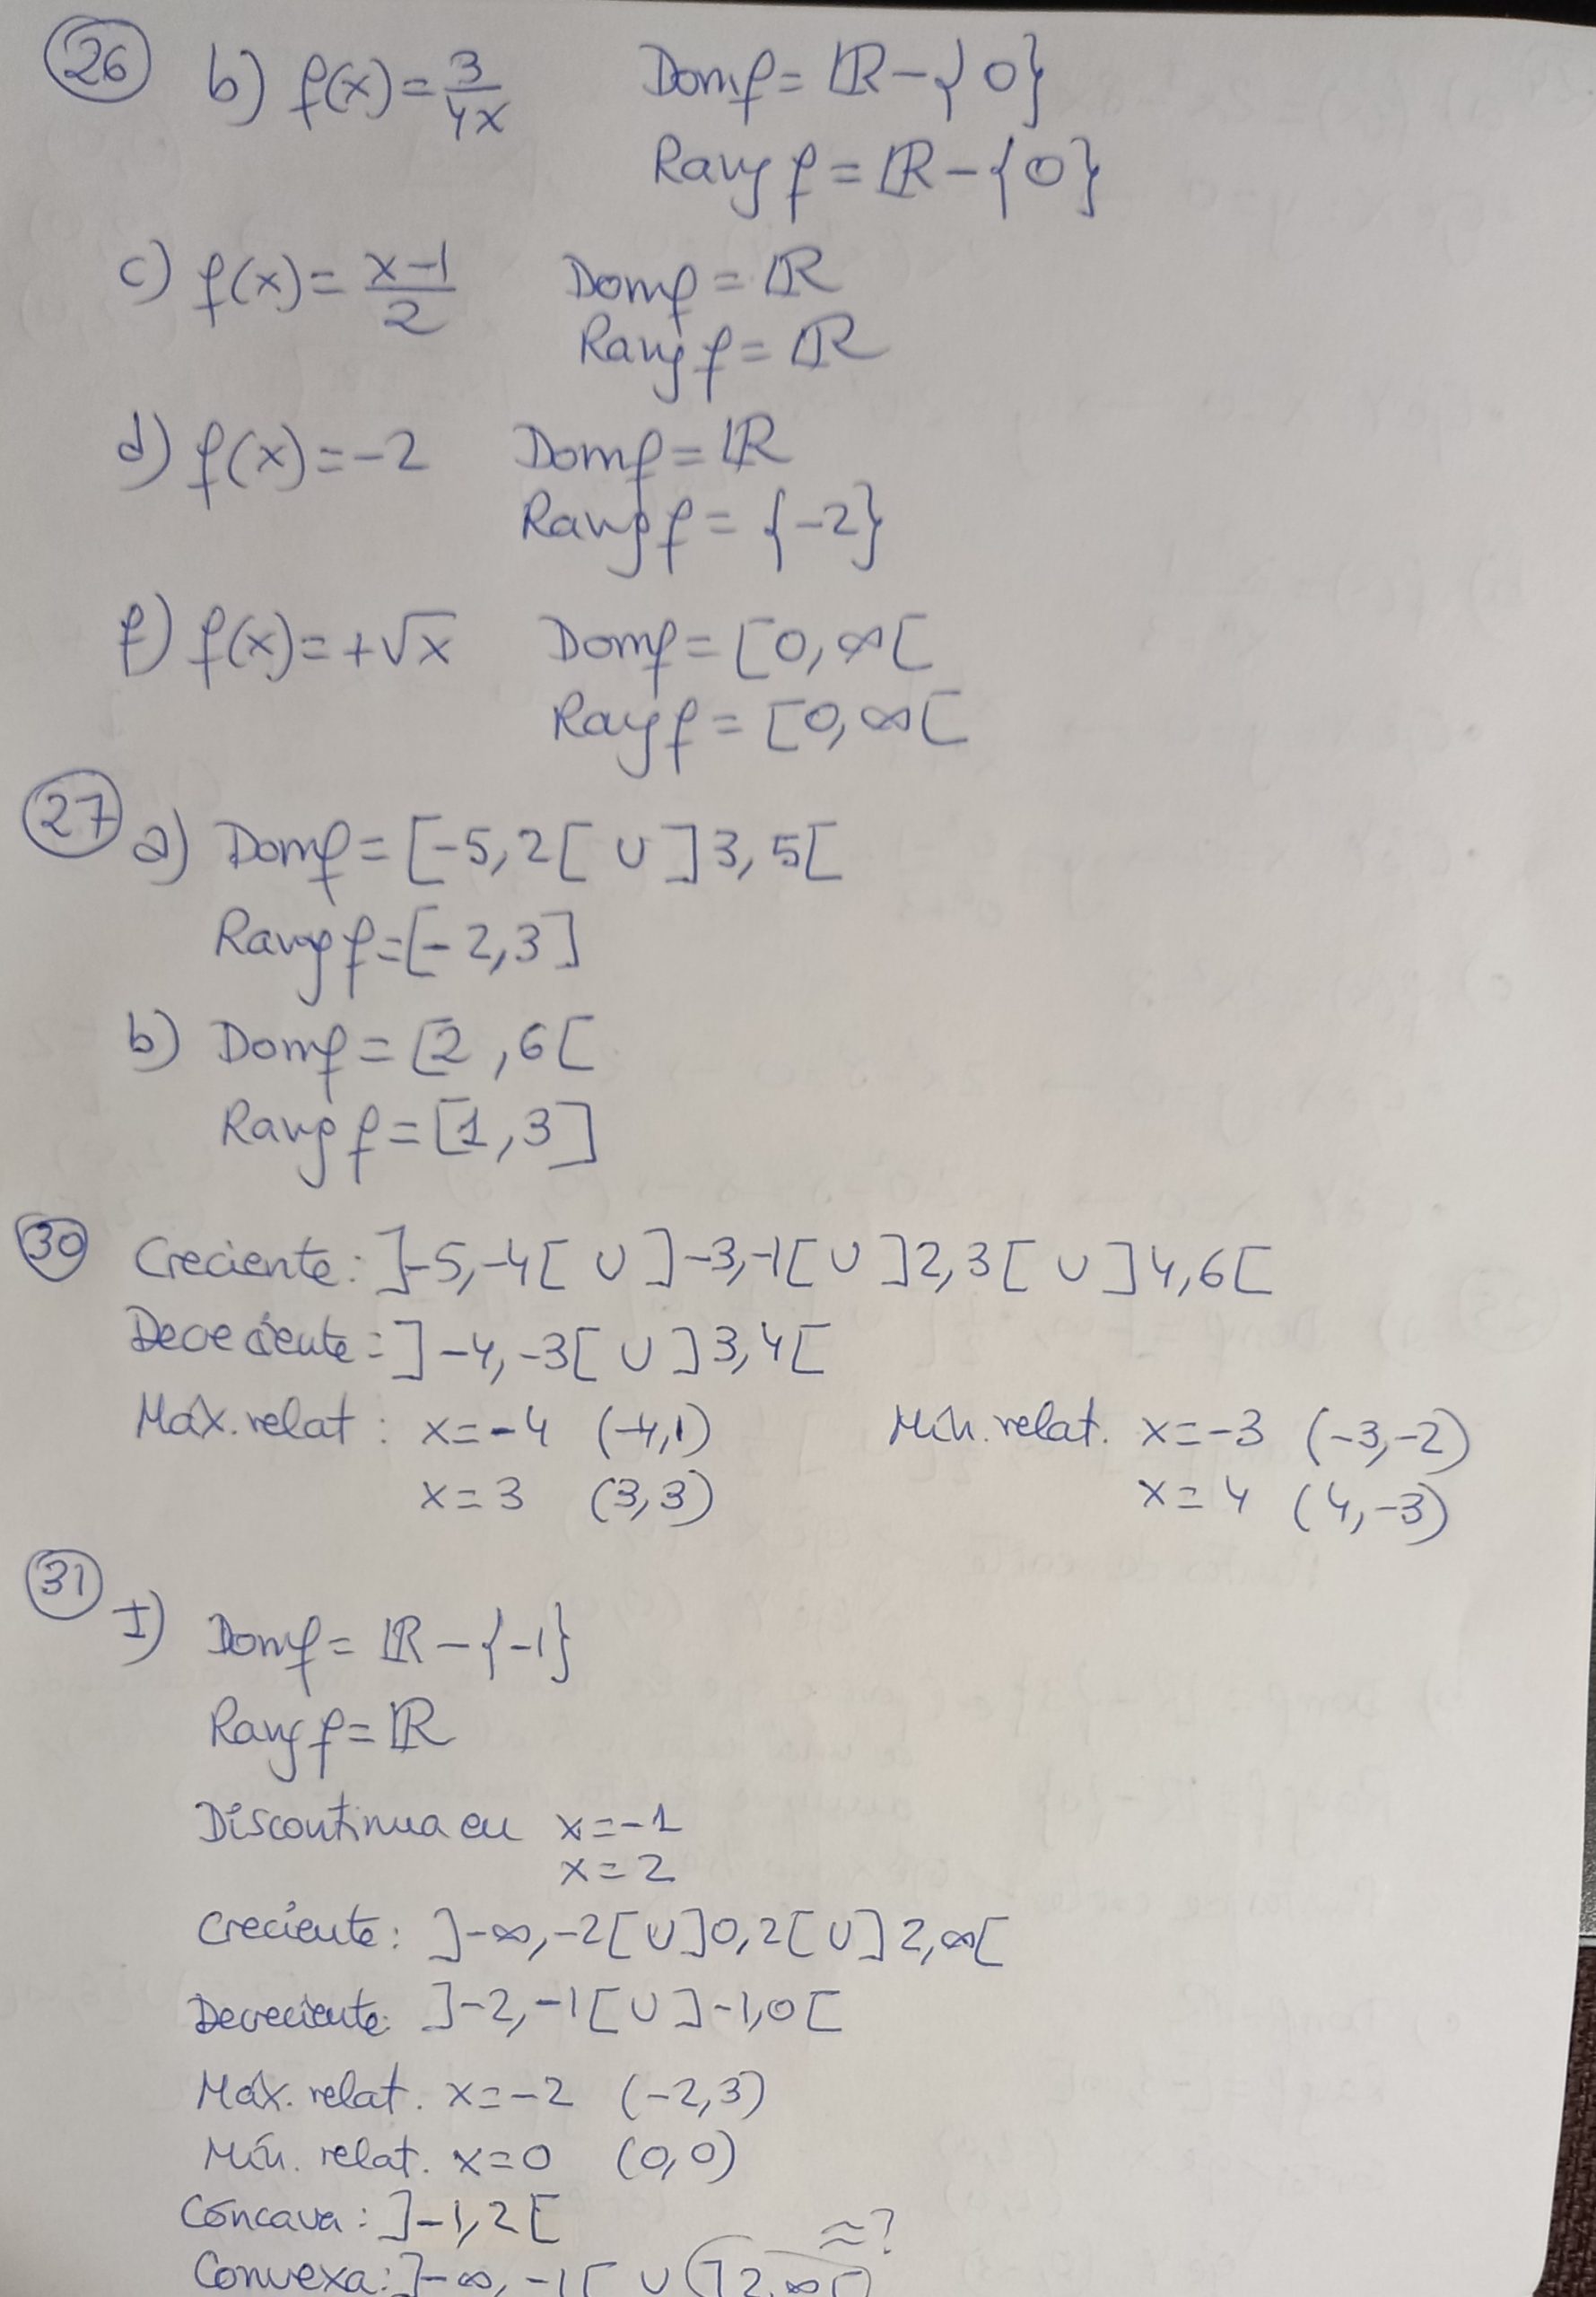 26 b) f(x) = 3/4x Dom f = ℝ - {0}
Rang f = ℝ - {0}
c) f(x) = x-1/2 Dom f = ℝ
Rang f = ℝ
d) f(x) = -2 Dom f = ℝ
Rang f = {-2}
f) f(x) = +√x Dom f = [0, ∞[
Rang f = [0, ∞[
27 a) Dom f = [-5, 2[ ∪ ]3, 5[
Rang f = [-2, 3]
b) Dom f = [2, 6[
Rang f = [1, 3]
30 Creciente: ]-5, -4[ ∪ ]-3, -1[ ∪ ]2, 3[ ∪ ]4, 6[
Decreciente: ]-4, -3[ ∪ ]3, 4[
Máx. relat: x = -4 (-4, 1) Mín. relat. x = -3 (-3, -2)
x = 3 (3, 3) x = 4 (4, -3)
31 I) Dom f = ℝ - {-1}
Rang f = ℝ
Discontinua en x = -1
x = 2
Creciente: ]-∞, -2[ ∪ ]0, 2[ ∪ ]2, ∞[
Decreciente: ]-2, -1[ ∪ ]-1, 0[
Máx. relat. x = -2 (-2, 3)
Mín. relat. x = 0 (0, 0)
Cóncava: ]-1, 2[ ≈?
Convexa: ]-∞, -1[ ∪ ]2, ∞[